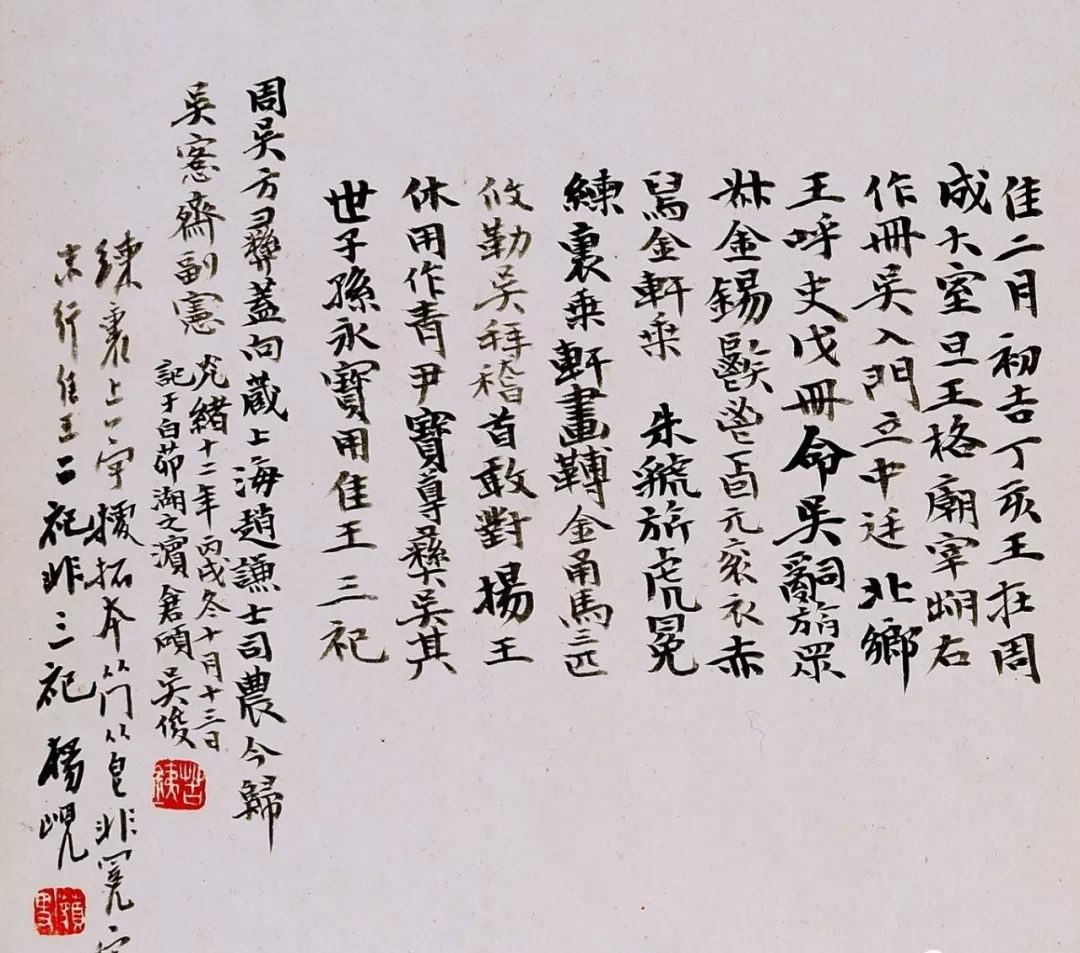 隹二月初吉丁亥王在周
成大室旦王格廟宰朏右
作冊吳入門立中廷北鄉
王呼史戊冊命吳嗣旃眾
叔金錫鬯卣元袞衣赤
舄金軒乘 朱虢旂虎冕
練裏乘軒畫轉金甬馬三匹
攸勒吳拜稽首敢對揚王
休用作青尹寶尊彝吳其
世子孫永寶用隹王三祀
周吳方彝蓋向蔵上海趙謙士司農今歸
吳愙齋副憲
光緒十二年丙戌冬十月十三日
記于白茆湖之濵倉碩吳俊
苦鐵
練裏上一字據拓本从門从皀非冕字
末行隹王二祀非三祀 楊峴